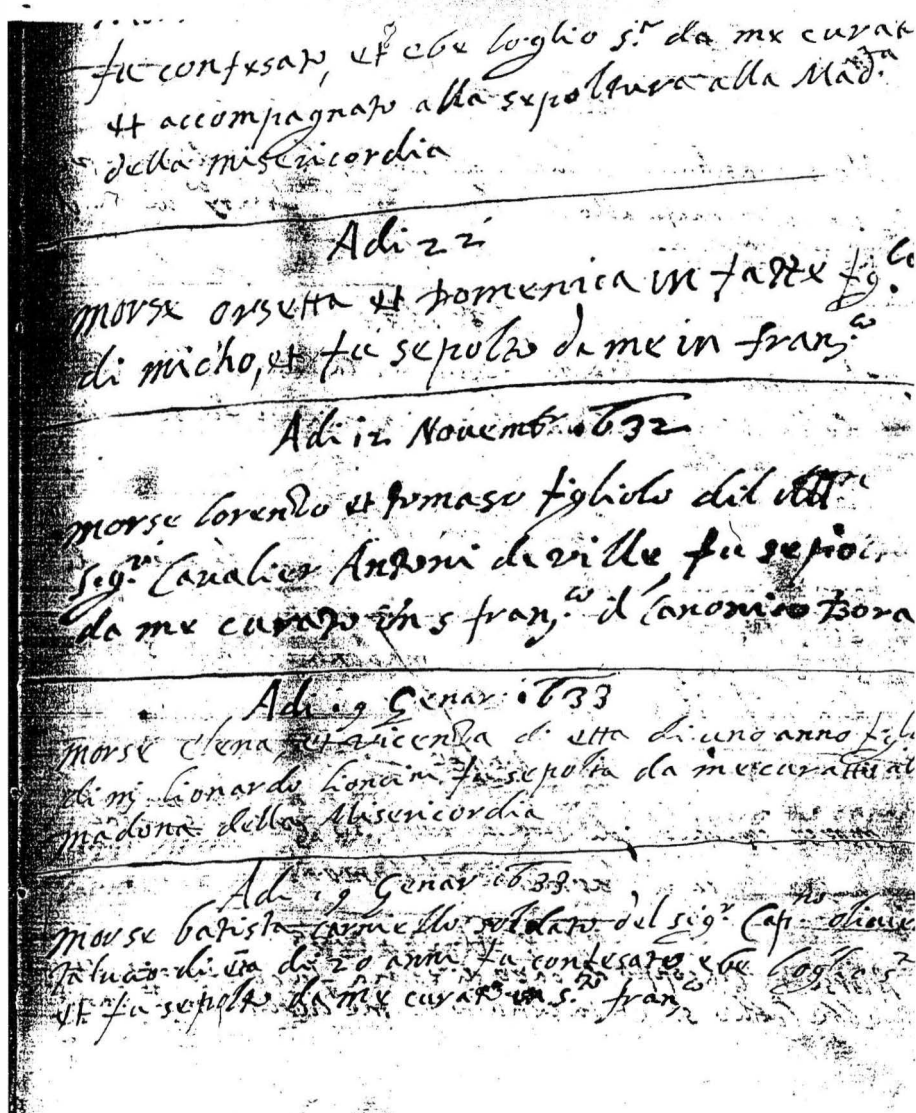 fu confesato, et ebe loglio s.to da me curat
et accompagnato alla sepoltura alla Mad.na
della misericordia
Adi 22
morse orsetta et domenica in fatte fig.
di micho, et fu sepolto da me in fran.co
Adi 12 Novemb. 1632
morse lorenzo et tomaso figliolo dil Ill.re
sig.r Cavalier Antoni de ville fu sepol
da me curato in s fran.co d Canonico
Adi 19 Genar 1633
morse elena, et vicenza di etta di uno anno figli
di m. lionardo fu sepolta da me curatto al
madona della Misericordia
Adi 19 Genar 1633
morse batista soldato del sig.r Cap.no
di eta di 20 anni fu confesato ebe loglio s.
et fu sepolto da me curato in s.to fran.co